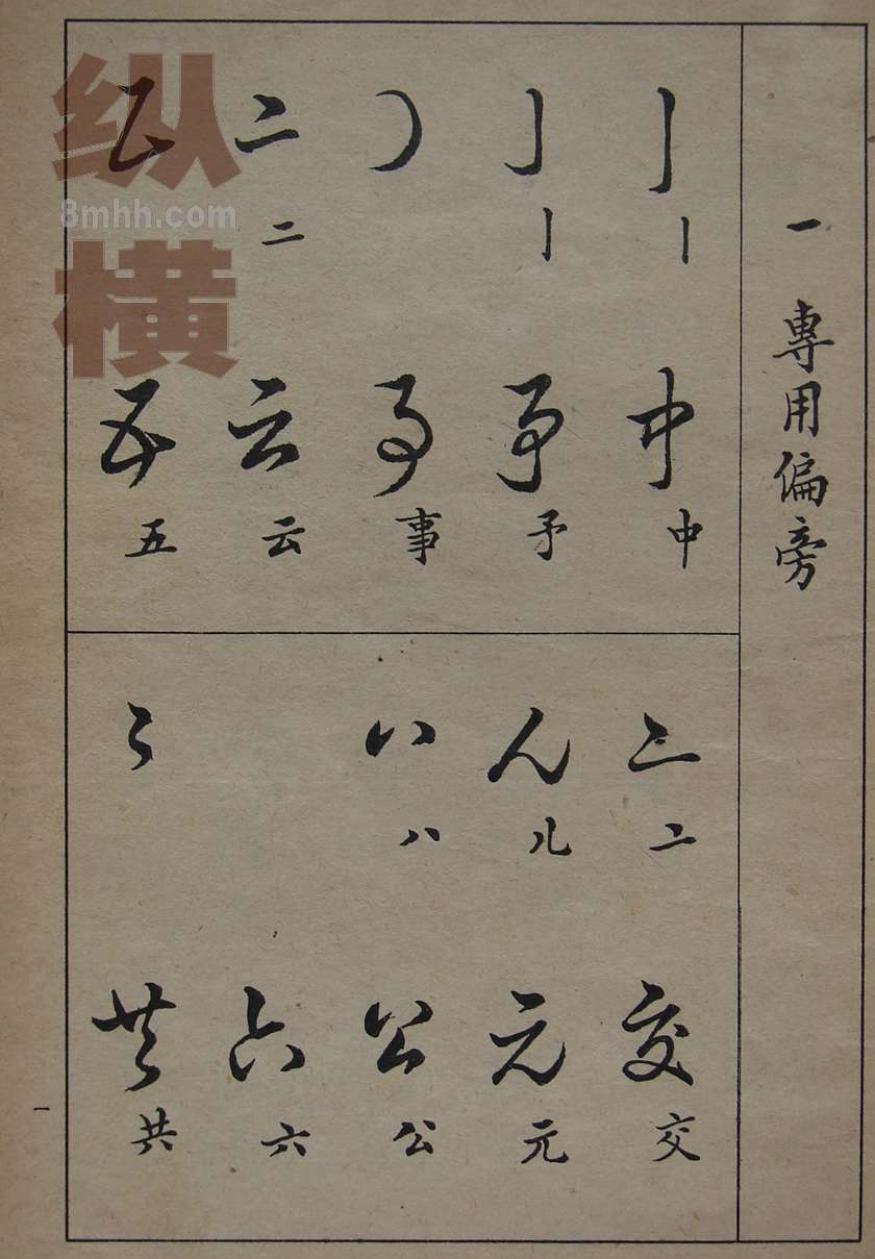 一 專用偏旁
丨 丨 中 中
亅 亅 予 予
事 事
二 二 云 云
五 五
亠 亠 交 交
儿 儿 元 元
八 八 公 公
六 六
共 共
一
纵横
8mhh.com